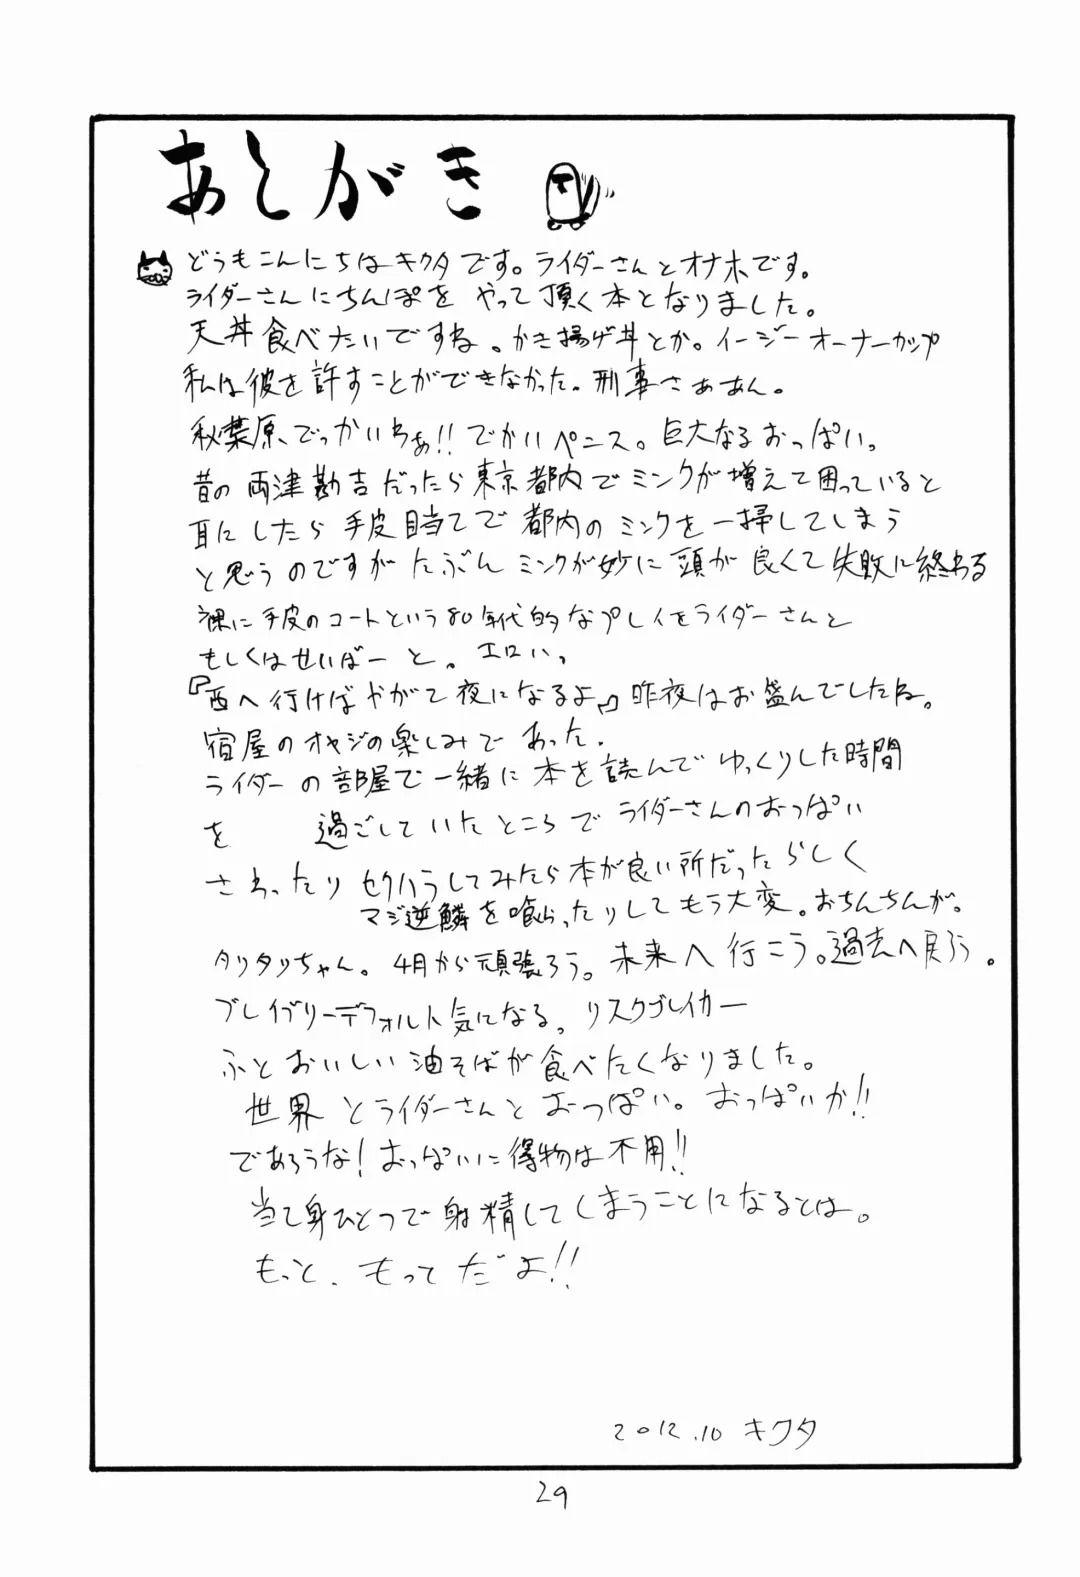 あとがき
どうもこんにちはキクタです。ライダーさんとオナホです。
ライダーさんにちんぽを やって頂く本となりました。
天丼食べたいですね。かき揚げ丼とか。イージーオーナーカップ
私は彼を許すことができなかった。刑事さぁあん。
秋葉原、でっかいわぁ!! でかいペニス。巨大なるおっぱい。
昔の両津勘吉だったら東京都内でミンクが増えて困っていると
耳にしたら手皮目当てで都内のミンクを一掃してしまう
と思うのですがたぶんミンクが妙に頭が良くて失敗に終わる
裸に手皮のコートという80年代的なプレイをライダーさんと
もしくはせいばーと。エロい。
『西へ行けばやがて夜になるよ』昨夜はお盛んでしたね。
宿屋のオヤジの楽しみであった。
ライダーの部屋で一緒に本を読んでゆっくりした時間
を 過ごしていたところでライダーさんのおっぱい
さわったりセクハラしてみたら本が良い所だったらしく
マジ逆鱗を喰らったりしてもう大変。おちんちんが。
タリタリちゃん。4月から頑張ろう。未来へ行こう。過去へ戻ろう。
ブレイブリーデフォルト気になる。リスクブレイカー
ふとおいしい油そばが食べたくなりました。
世界とライダーさんとおっぱい。おっぱいか!!
であろうな!おっぱいに得物は不用!!
当て身ひとつで射精してしまうことになるとは。
もっと、もってだよ!!
2012.10 キクタ
29